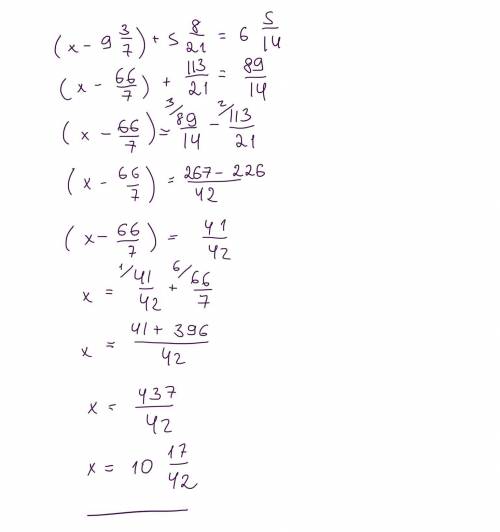 (x - 9 3/7) + 5 8/21 = 6 5/14
(x - 66/7) + 113/21 = 89/14
(x - 66/7) = 3/ 89/14 - 2/ 113/21
(x - 66/7) = 267 - 226/42
(x - 66/7) = 41/42
x = 1/ 41/42 + 6/ 66/7
x = 41 + 396/42
x = 437/42
x = 10 17/42